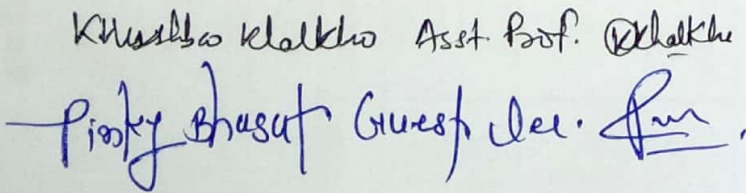 Khushboo Khalkho Asst. Prof. KKhalkho
Pinky Bhagat Guest Lec.